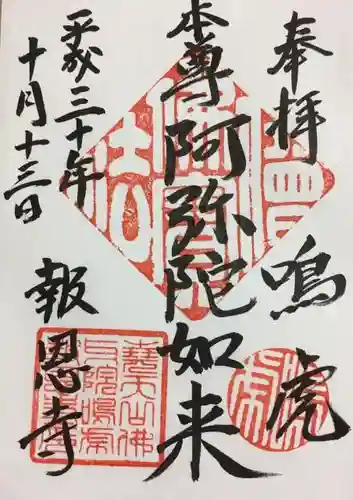 奉拝
鳴虎
本尊阿弥陀如来
平成三十年
十月十三日
報恩寺